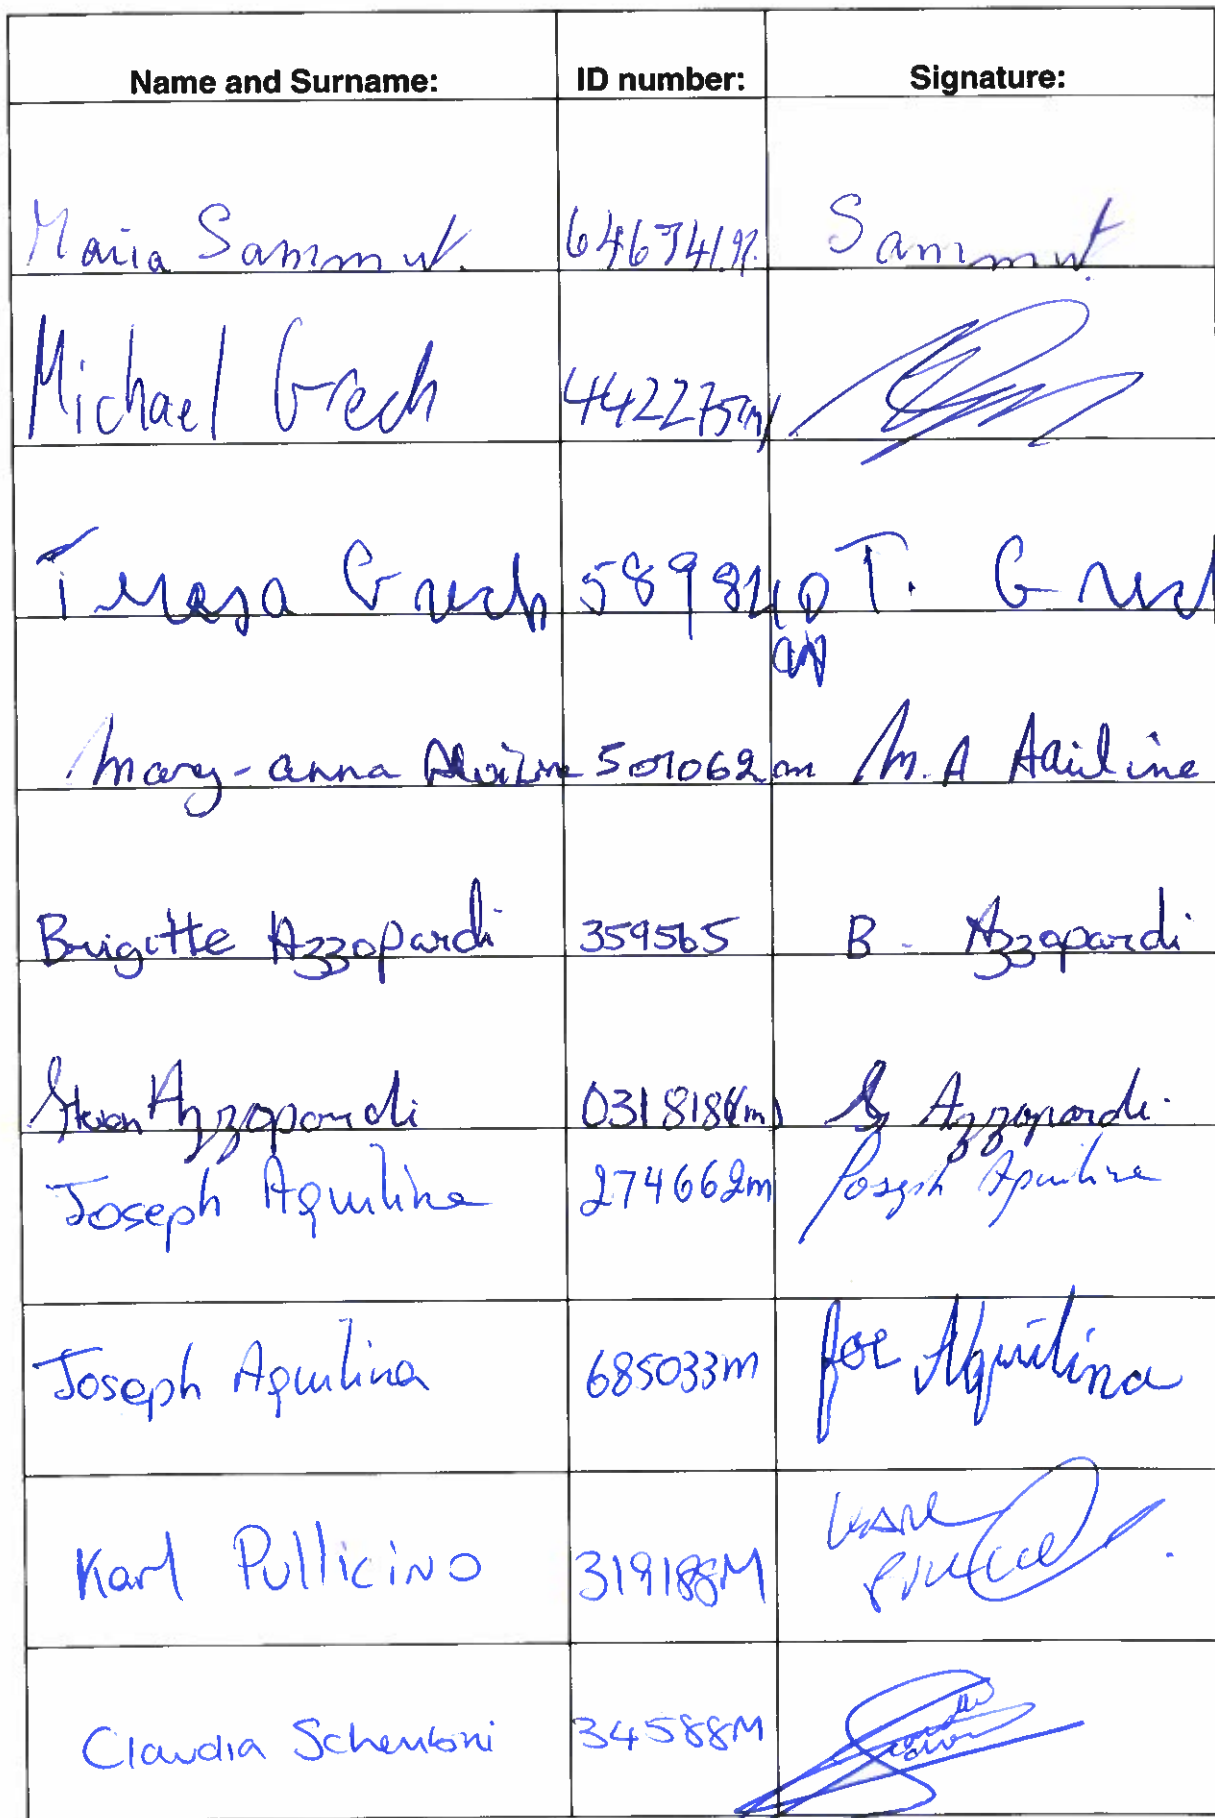 Name and Surname: ID number: Signature:
Maria Sammut. Sammut.
Michael Grech 442275m
Teresa Grech 589840 T. Grech
Mary-anna 501062m M. A
Brigitte Azzopardi 359565 B - Azzopardi
Steven Azzopardi 0318184(m) S Azzopardi
Joseph Aquilina 274662m Joseph Aquilina
Joseph Aquilina 685033m Joe Aquilina
Karl Pullicino 319188M Karl
Claudia 34588M